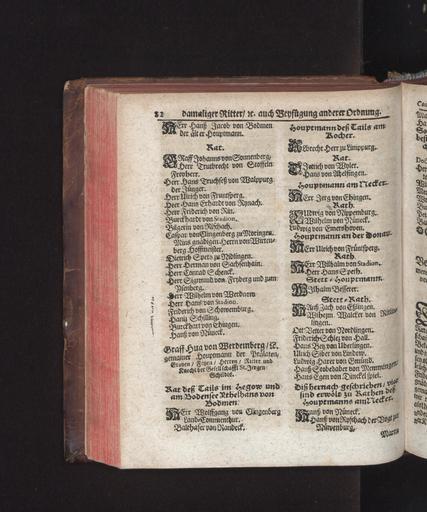 82 damaliger Ritter/ ꝛc. auch Beyfügung anderer Ordnung.
HErr Hanß Jacob von Bodmen
der älter Houptmann.
Rat.
GRaff Johanns von Sonnenberg/
Herr Truchsess von Stoffeln
Freyherr.
Herr Hans Truchseß von Walppurg
der Jünger.
Herr Ulrich von Früntsperg.
Herr Hans Erhardt von Rynach.
Herr Friderich von Rüt.
Burckhardt von Stadion.
Bilgerin von Rischach.
Caspar von Clingenberg zu Möringen.
Mins gnädigen Herrn von Wirten-
berg Hoffmeister.
Dietrich Spett zu Nidlingen.
Herr Herman von Sachsenhain.
Herr Conrad Schenck.
Herr Sigmund von Fryberg und zum
Nsenberg.
Herr Wilhelm von Werdnow
Herr Hans von Stadion.
Friderich von Schowemburg.
Hantz Schilling.
Burckhart von Ehingen.
Hanß von Núneck.
Graff Hug von Werdemberg/ ꝛc.
gemainer Houptmann der Prälaten,
Graven / Fryen / Herren / Ritter und
Knecht der Gesellschafft St. Jergen
Schildts.
Rat deß Tails im Hegow und
am Bodensee Rthelhans von
Bodmen.
HErr Wolffgang von Clingenberg
Land-Commenthur.
Balthaser von Randeck.
Houptmann deß Tails am
Kocher.
ALbrecht Herr zu Limppurg.
Rat.
DIetrich von Wyler.
Hans von Ahelfingen.
Houptmann am Necker.
HErr Jerg von Ehingen.
Rath.
LUdwig von Nippenburg.
Wilhelm von Núneck.
Ludwig von Emershoven.
Houptmann an der Donau.
HErr Ulrich von Früntsperg.
Rath.
HErr Wilhalm von Stadion.
Herr Hans Speth.
Stett-Houptmann.
WIlhalm Besserer.
Stett-Rath.
HAnß Zach von Eßlingen.
Wilhelm Walcker von
lingen.
Ott Vetter von Nördlingen.
Friderich Schletz von Hall.
Hans Bey von Uberlingen.
Ulrich Siber von Lindew.
Ludwig Harer von Gmünd.
Hanß Stebehaber von Memmingen.
Hans Egen von Dinckelspiel.
Diß hernach geschrieben/
sind erwölt zu Rathen deß
Houptmanns am Necker.
HAnß von Núneck.
Hanß von der Vogt zu
Martin